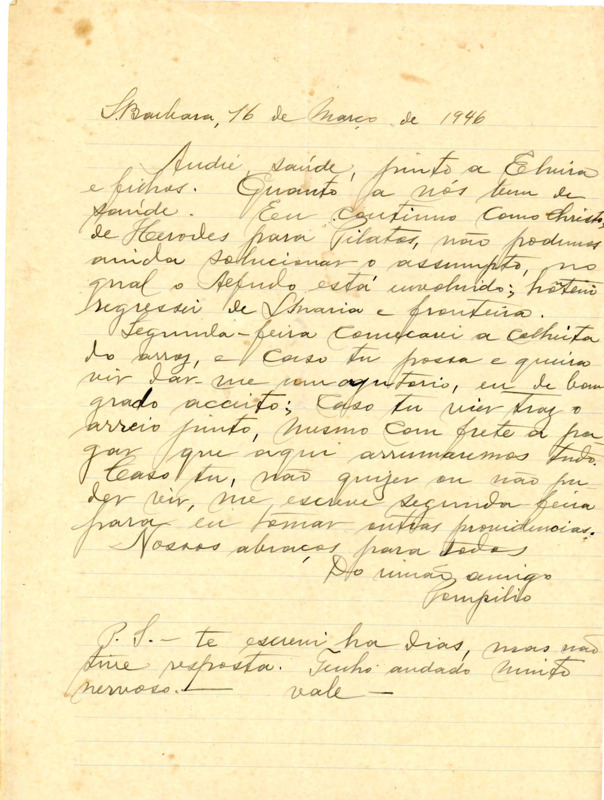 S. Barbara, 16 de Março de 1946
André, saúde, junto a Elvira
e filhos. Quanto a nós bem de
saúde. Eu continuo como Christo,
de Herodes para Pilatos, não podemos
ainda solucionar o assumpto, no
qual o está involvido; hôtem
regressei de S. Maria e fronteira.
Segunda-feira começarei a colheita
do arroz, e caso tu possa e queira
vir dar-me um ajutorio, eu de bom
grado acceito; caso tu vier traz o
arreio junto, mesmo com frete a pa
gar que aqui arrumaremos tudo.
Caso tu, não quizer ou não pu
der vir, me escreve segunda feira
para eu tomar outras providencias.
Nossos abraços para todos
Do irmão amigo
Pompilio
P. S. - te escrevi ha dias, mas não
tive resposta. Tenho andado muito
nervoso. — vale —